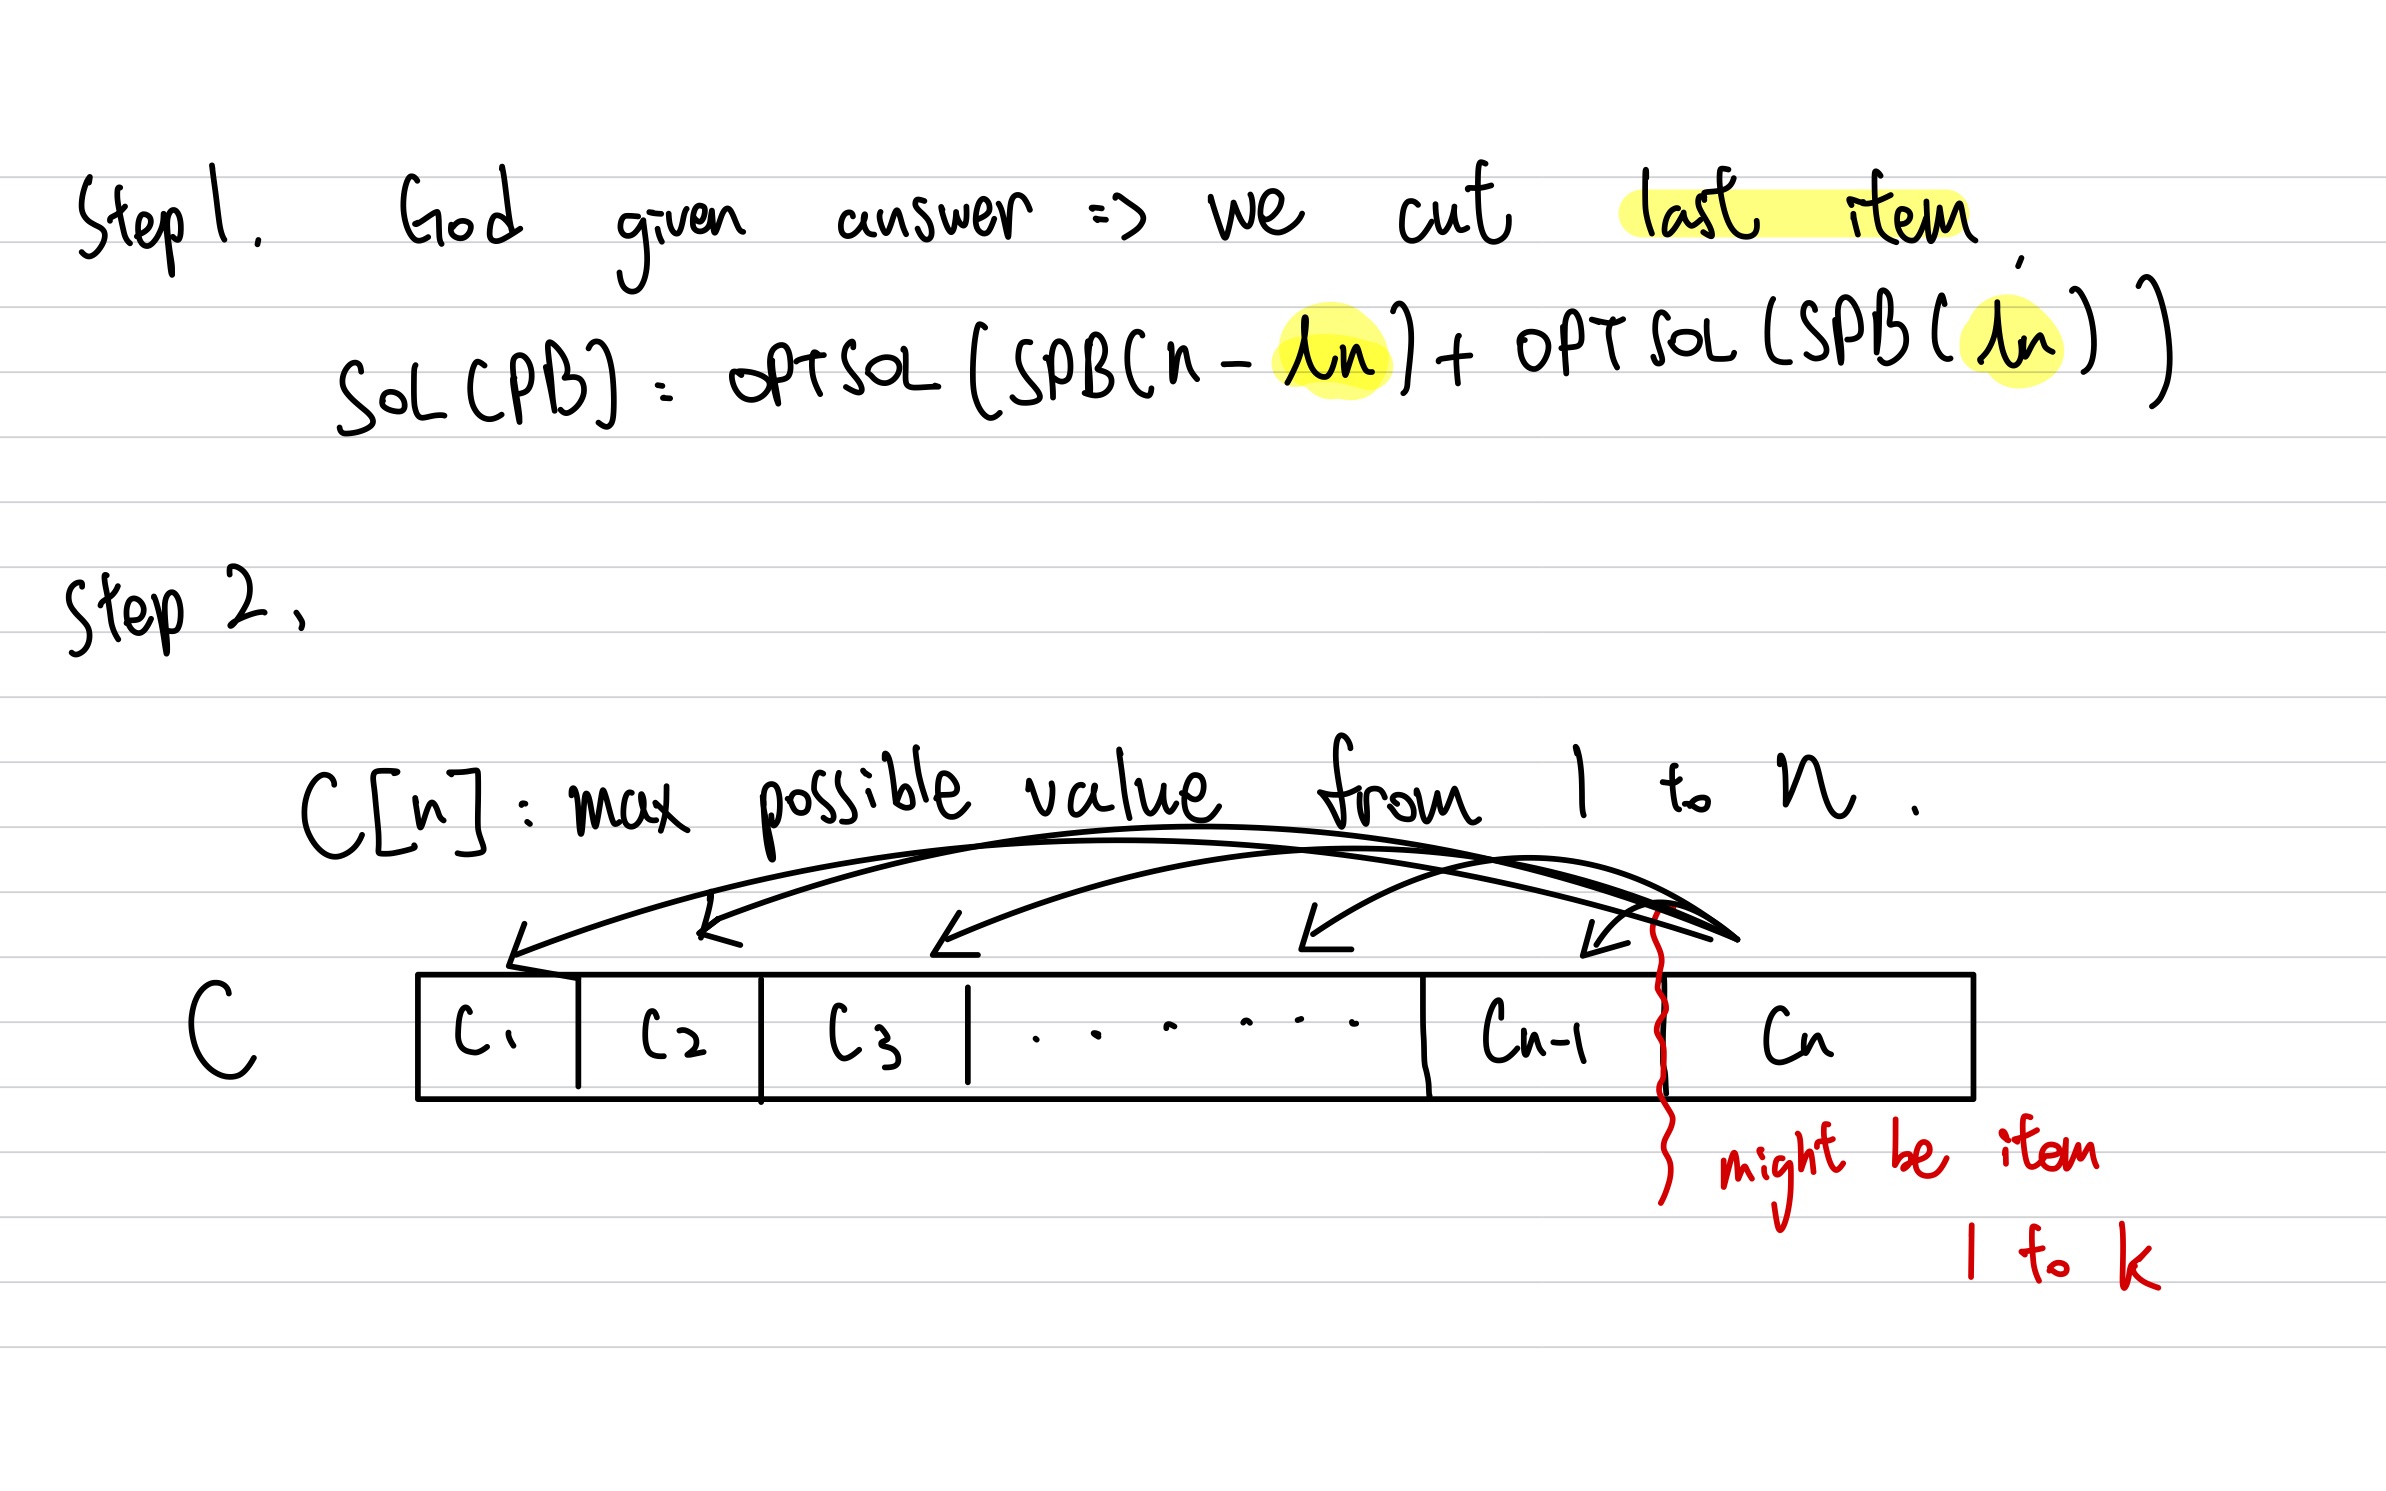 Step 1. God given answer => we cut last item.
Sol (PB) = OPTSOL (SPB(n - ln) + OPT SOL (SPB(ln)))
Step 2.
C[n] : max possible value from 1 to n.
C C1 C2 C3 ...... Cn-1 Cn
might be item
1 to k